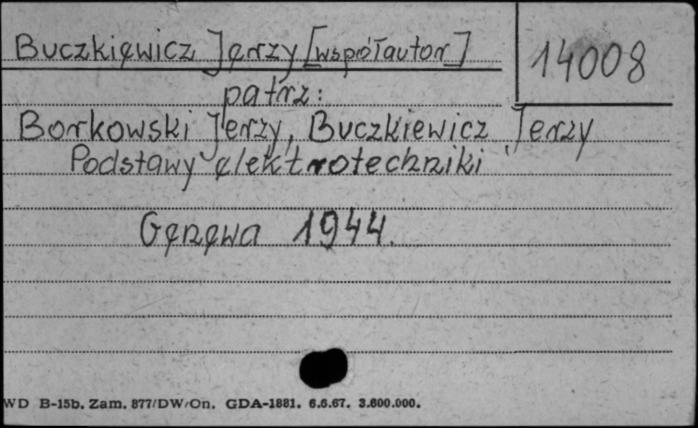 Buczkiewicz Jerzy [współautor]
14008
patrz:
Borkowski Jerzy, Buczkiewicz Jerzy
Podstawy elektrotechniki
Genewa 1944.
WD B-15b. Zam. 877/DW/On. GDA-1881. 6.6.67. 3.600.000.